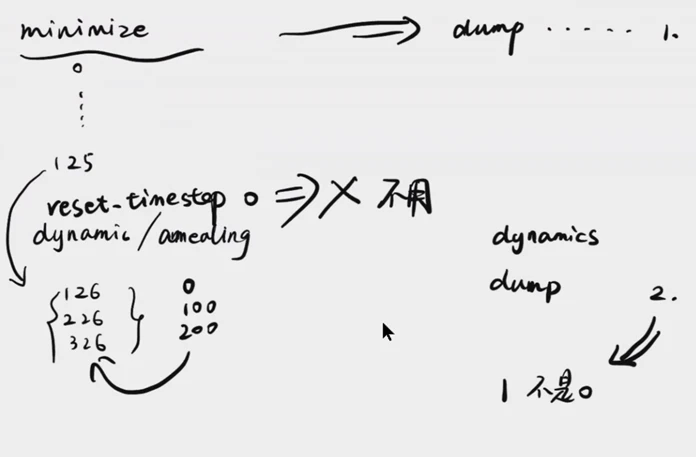 minimize
dump ...... 1.
0
125
reset-timestep 0 ⇒ X 不用
dynamic/annealing
126 0
226 100
326 200
dynamics
dump 2.
1 不是0